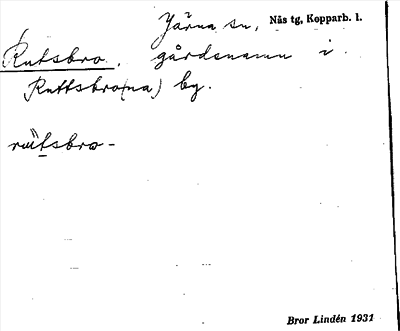 Järna sn, Nås tg, Kopparb. l.
Rutsbro, gårdsnamn i
Ruttsbro(na) by.
rut̀sbro-
Bror Lindén 1931